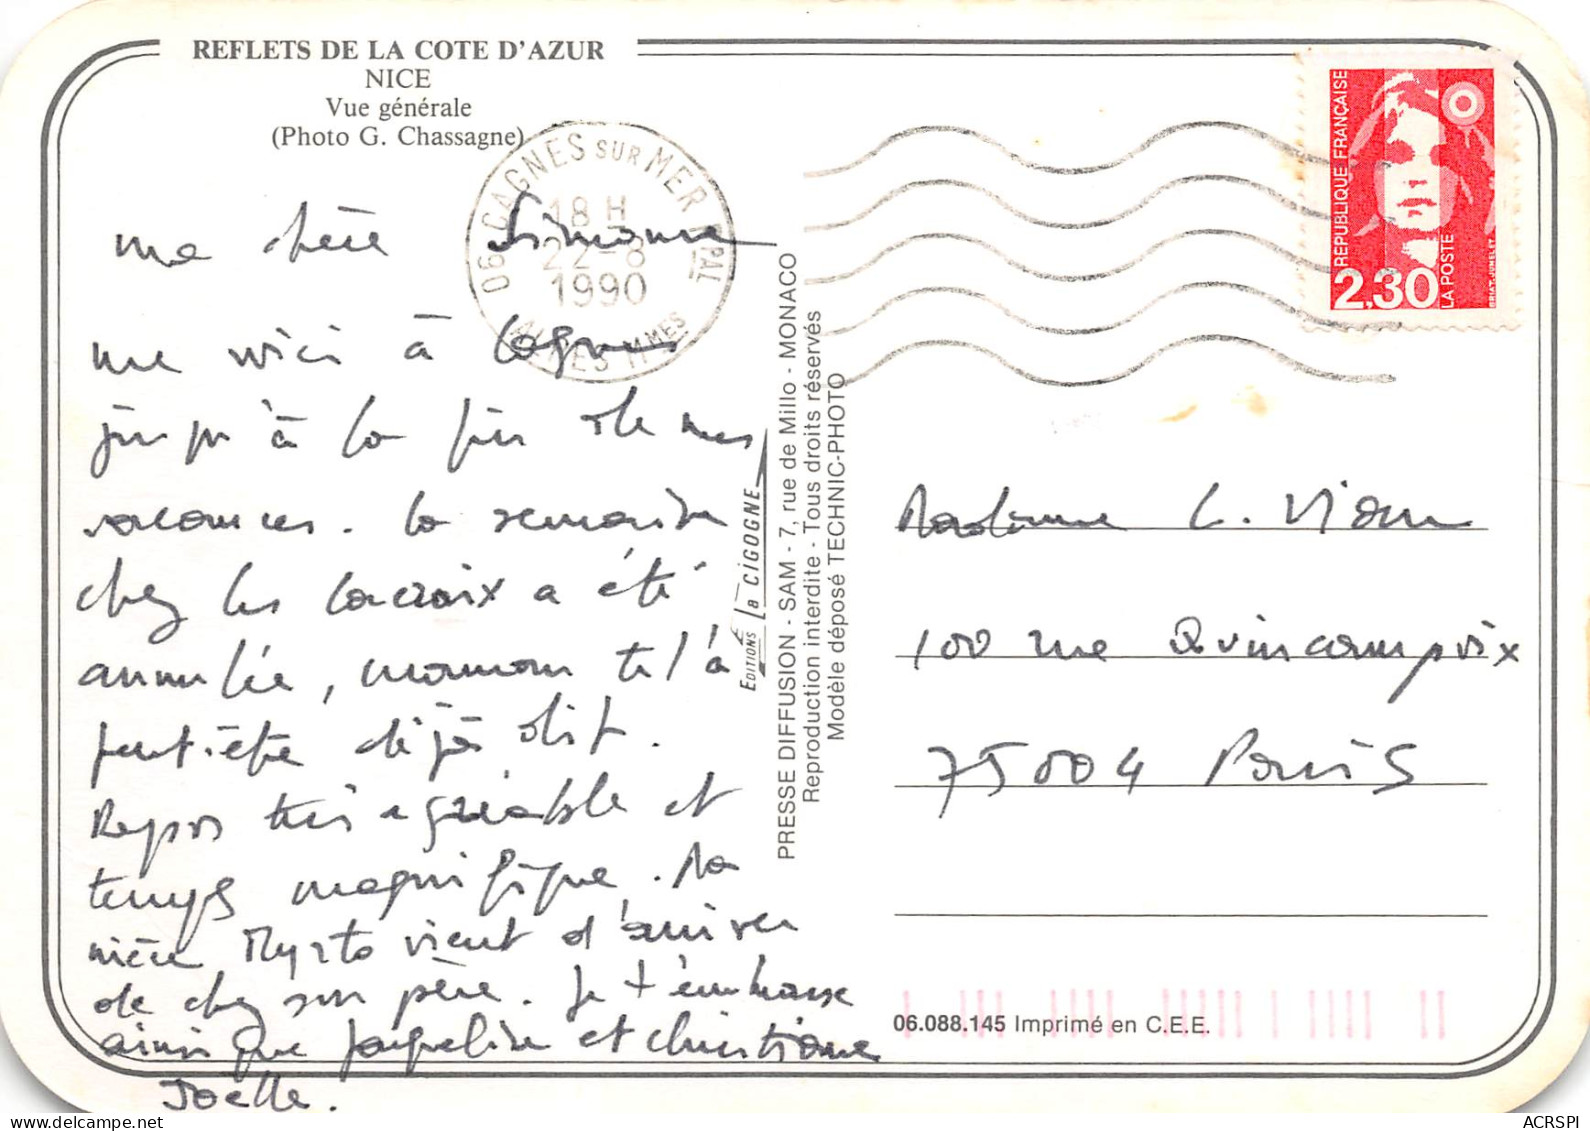 REFLETS DE LA COTE D'AZUR
NICE
Vue générale
(Photo G. Chassagne)
06 CAGNES SUR MER PPAL
18 H
22-8
1990
ALPES MMES
ma chère Simone
me voici à Cagnes
jusqu'à la fin de mes
vacances. La semaine
chez les Lacroix a été
annulée, maman te l'a
peut-être déjà dit.
Repos très agréable et
temps magnifique. Ma
nièce Myrto vient d'arriver
de chez son père. Je t'embrasse
ainsi que Jacqueline et Christiane
Joëlle.
EDITIONS La CIGOGNE
PRESSE DIFFUSION - SAM - 7, rue de Millo - MONACO
Reproduction interdite - Tous droits réservés
Modèle déposé TECHNIC-PHOTO
REPUBLIQUE FRANÇAISE
2,30
LA POSTE
BRIAT-JUMELET
Madame L.
100 rue Quincampoix
75004 Paris
06.088.145 Imprimé en C.E.E.
ACRSPI